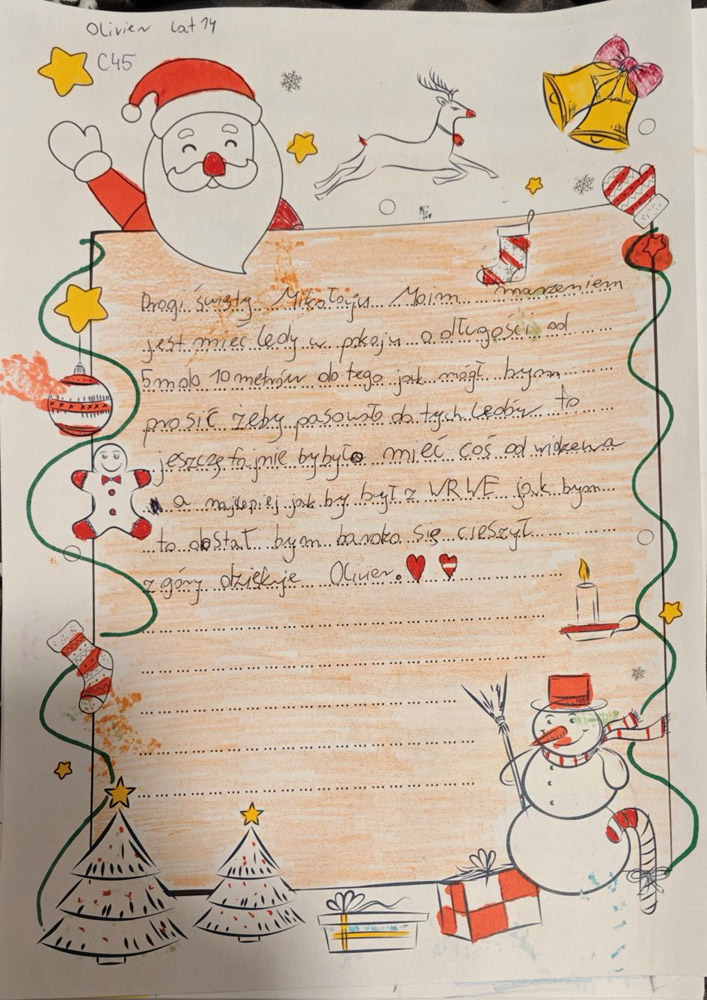 Olivier Lat 14
C45
Drogi święty Mikołaju Moim marzeniem
jest mieć ledy w pokoju o długości od
5m do 10 metrów do tego jak mógł bbym
prosić żeby pasowało do tych ledów to
jeszczę fajnie bybyło mieć coś od widzewa
a najlepiej jak by był z WRWE jak bym
to dostał bym bardzo się cieszył
z góry dziękuje Olivier.